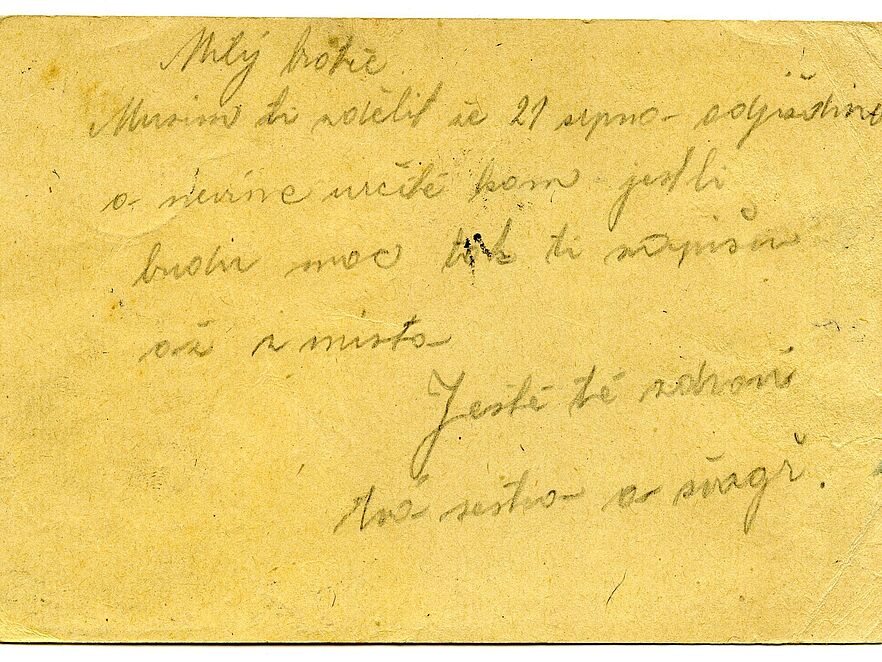 Milý bratře
Musim ti zdělit že 21 srpna odjíždíme
a nevíme určitě kam jestli
budu moc tak ti napišu
až z mista
Ještě tě zdraví
tvá sestra a švagr.